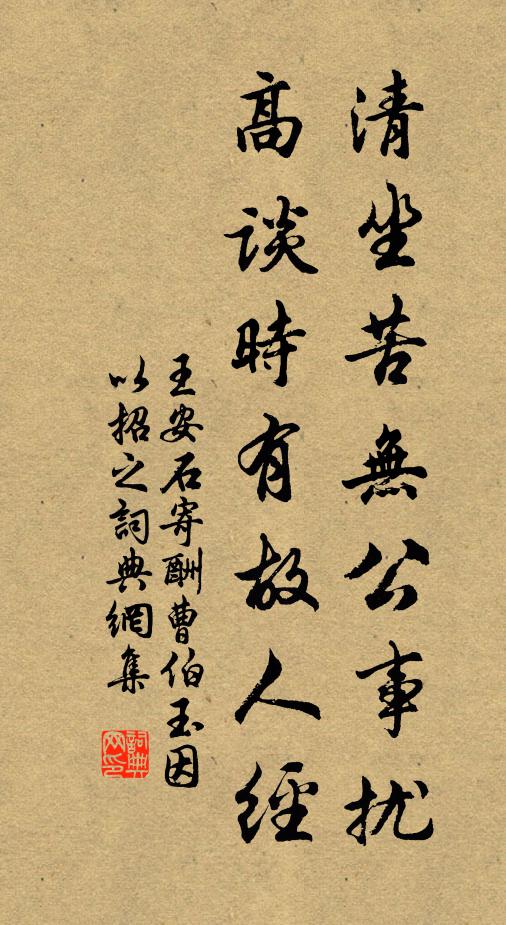 清坐苦無公事扰
高談時有故人經
王安石寄酬曹伯玉因
以招之詞典網集
詞典
网印